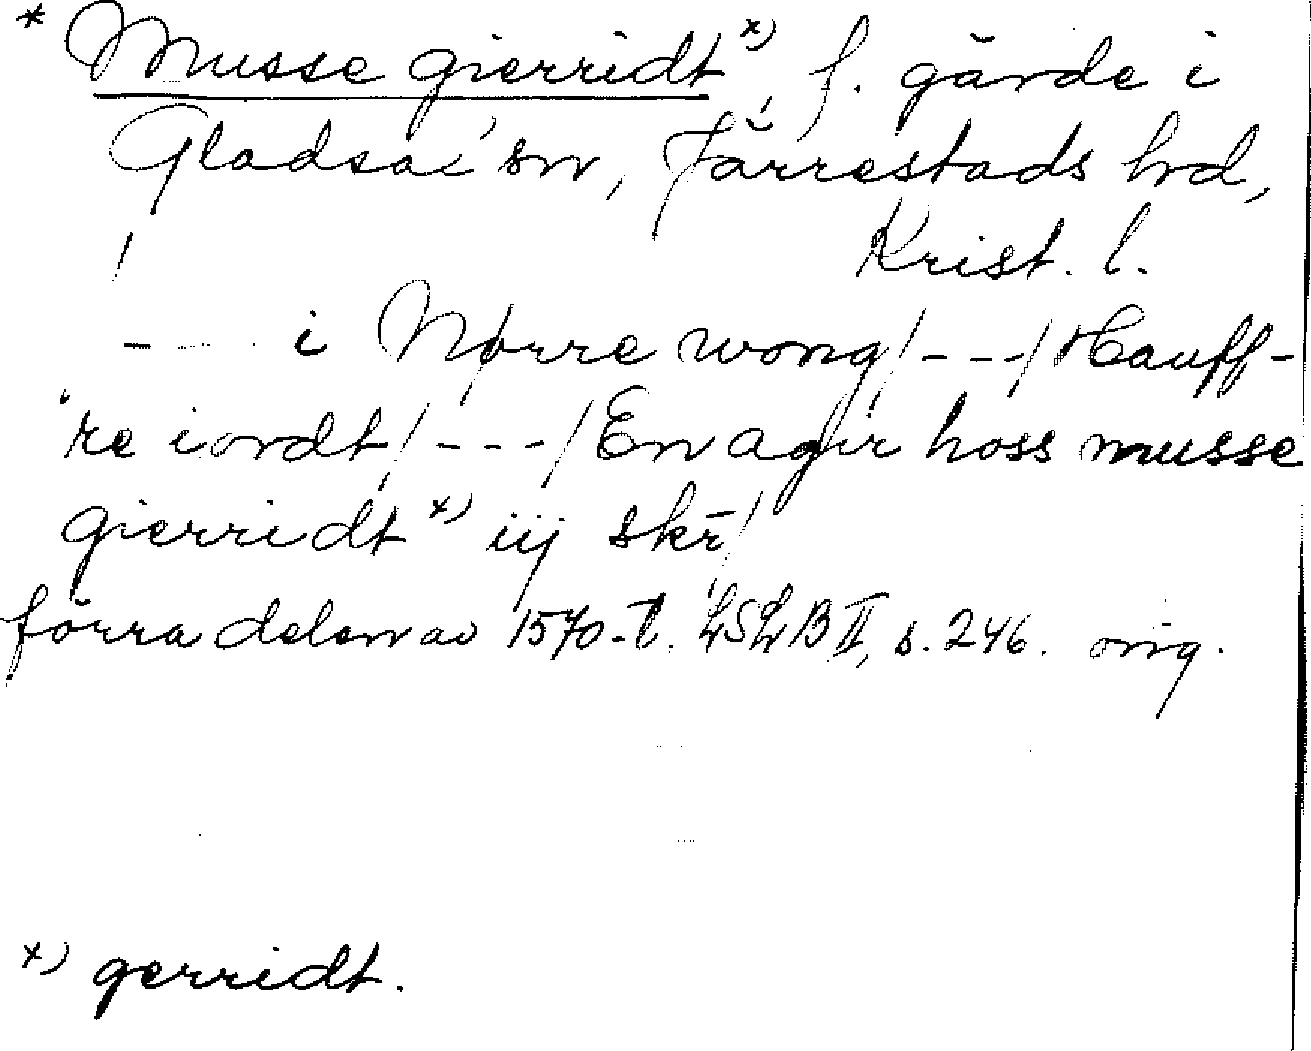 * Musse gierridt x), f. gärde i
Gladsax sn, Järrestads hd,
Krist. l.
/--- i Nørre wong/---/Hauff-
re iordt/---/En agir hoss musse
gierridt x) iij skr̄/
förra delen av 1570-t. LSLB II, s. 246. orig.
x) gerridt.